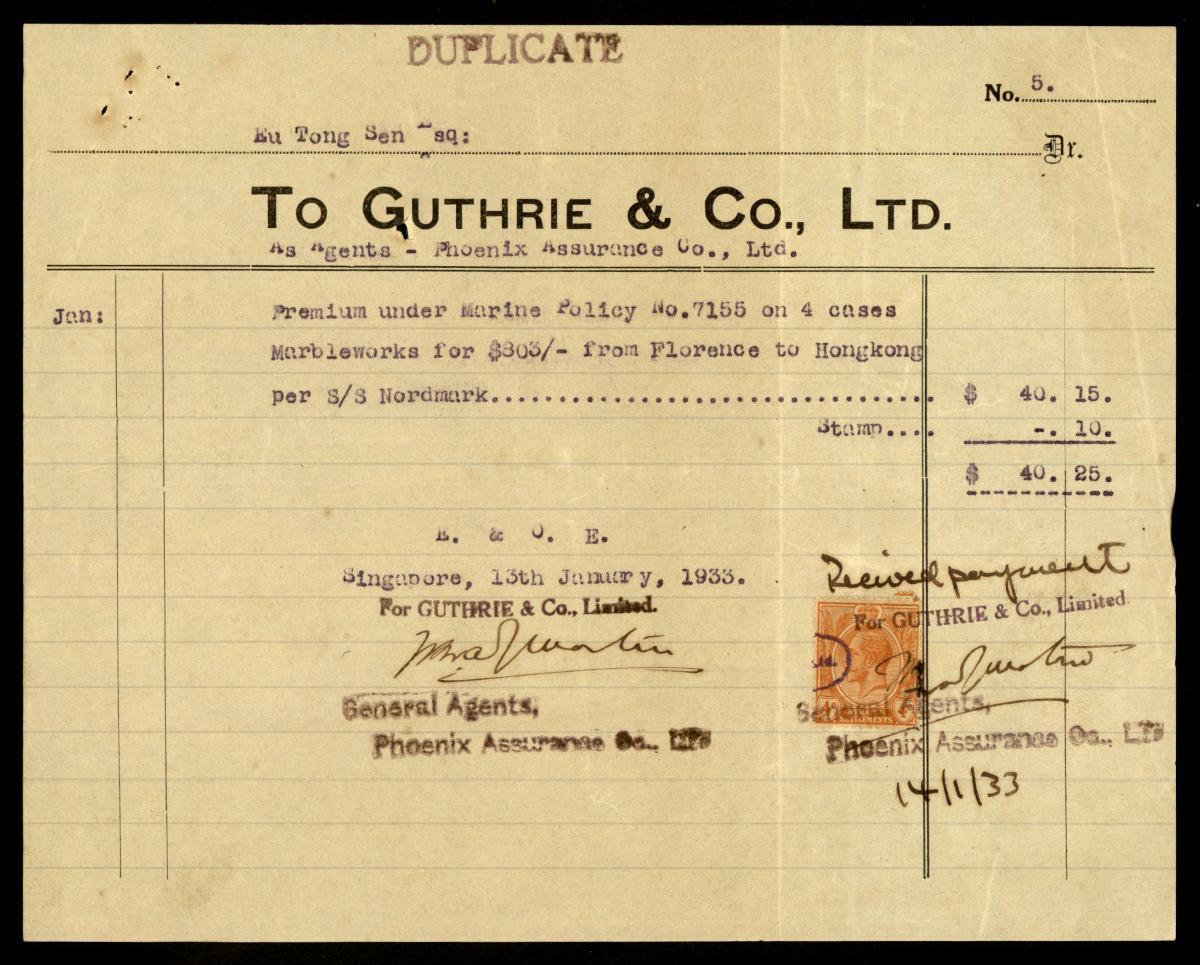 DUPLICATE
No. 5.
Eu Tong Sen Esq:
Dr.
TO GUTHRIE & CO., LTD.
As Agents - Phoenix Assurance Co., Ltd.
Jan: Premium under Marine Policy No.7155 on 4 cases
Marbleworks for $803/- from Florence to Hongkong
per S/S Nordmark................................. $ 40. 15.
Stamp.... -. 10.
$ 40. 25.
E. & O. E.
Singapore, 13th January, 1933.
For GUTHRIE & Co., Limited.
General Agents,
Phoenix Assurance Co., LTD
Received payment
For GUTHRIE & Co., Limited.
Ltd.
SETTLEMENTS
General Agents,
Phoenix Assurance Co., LTD
14/1/33